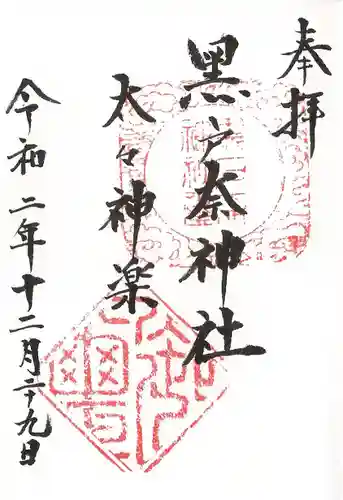 奉拝
黒戸奈神社
太々神楽
令和二年十二月二十九日